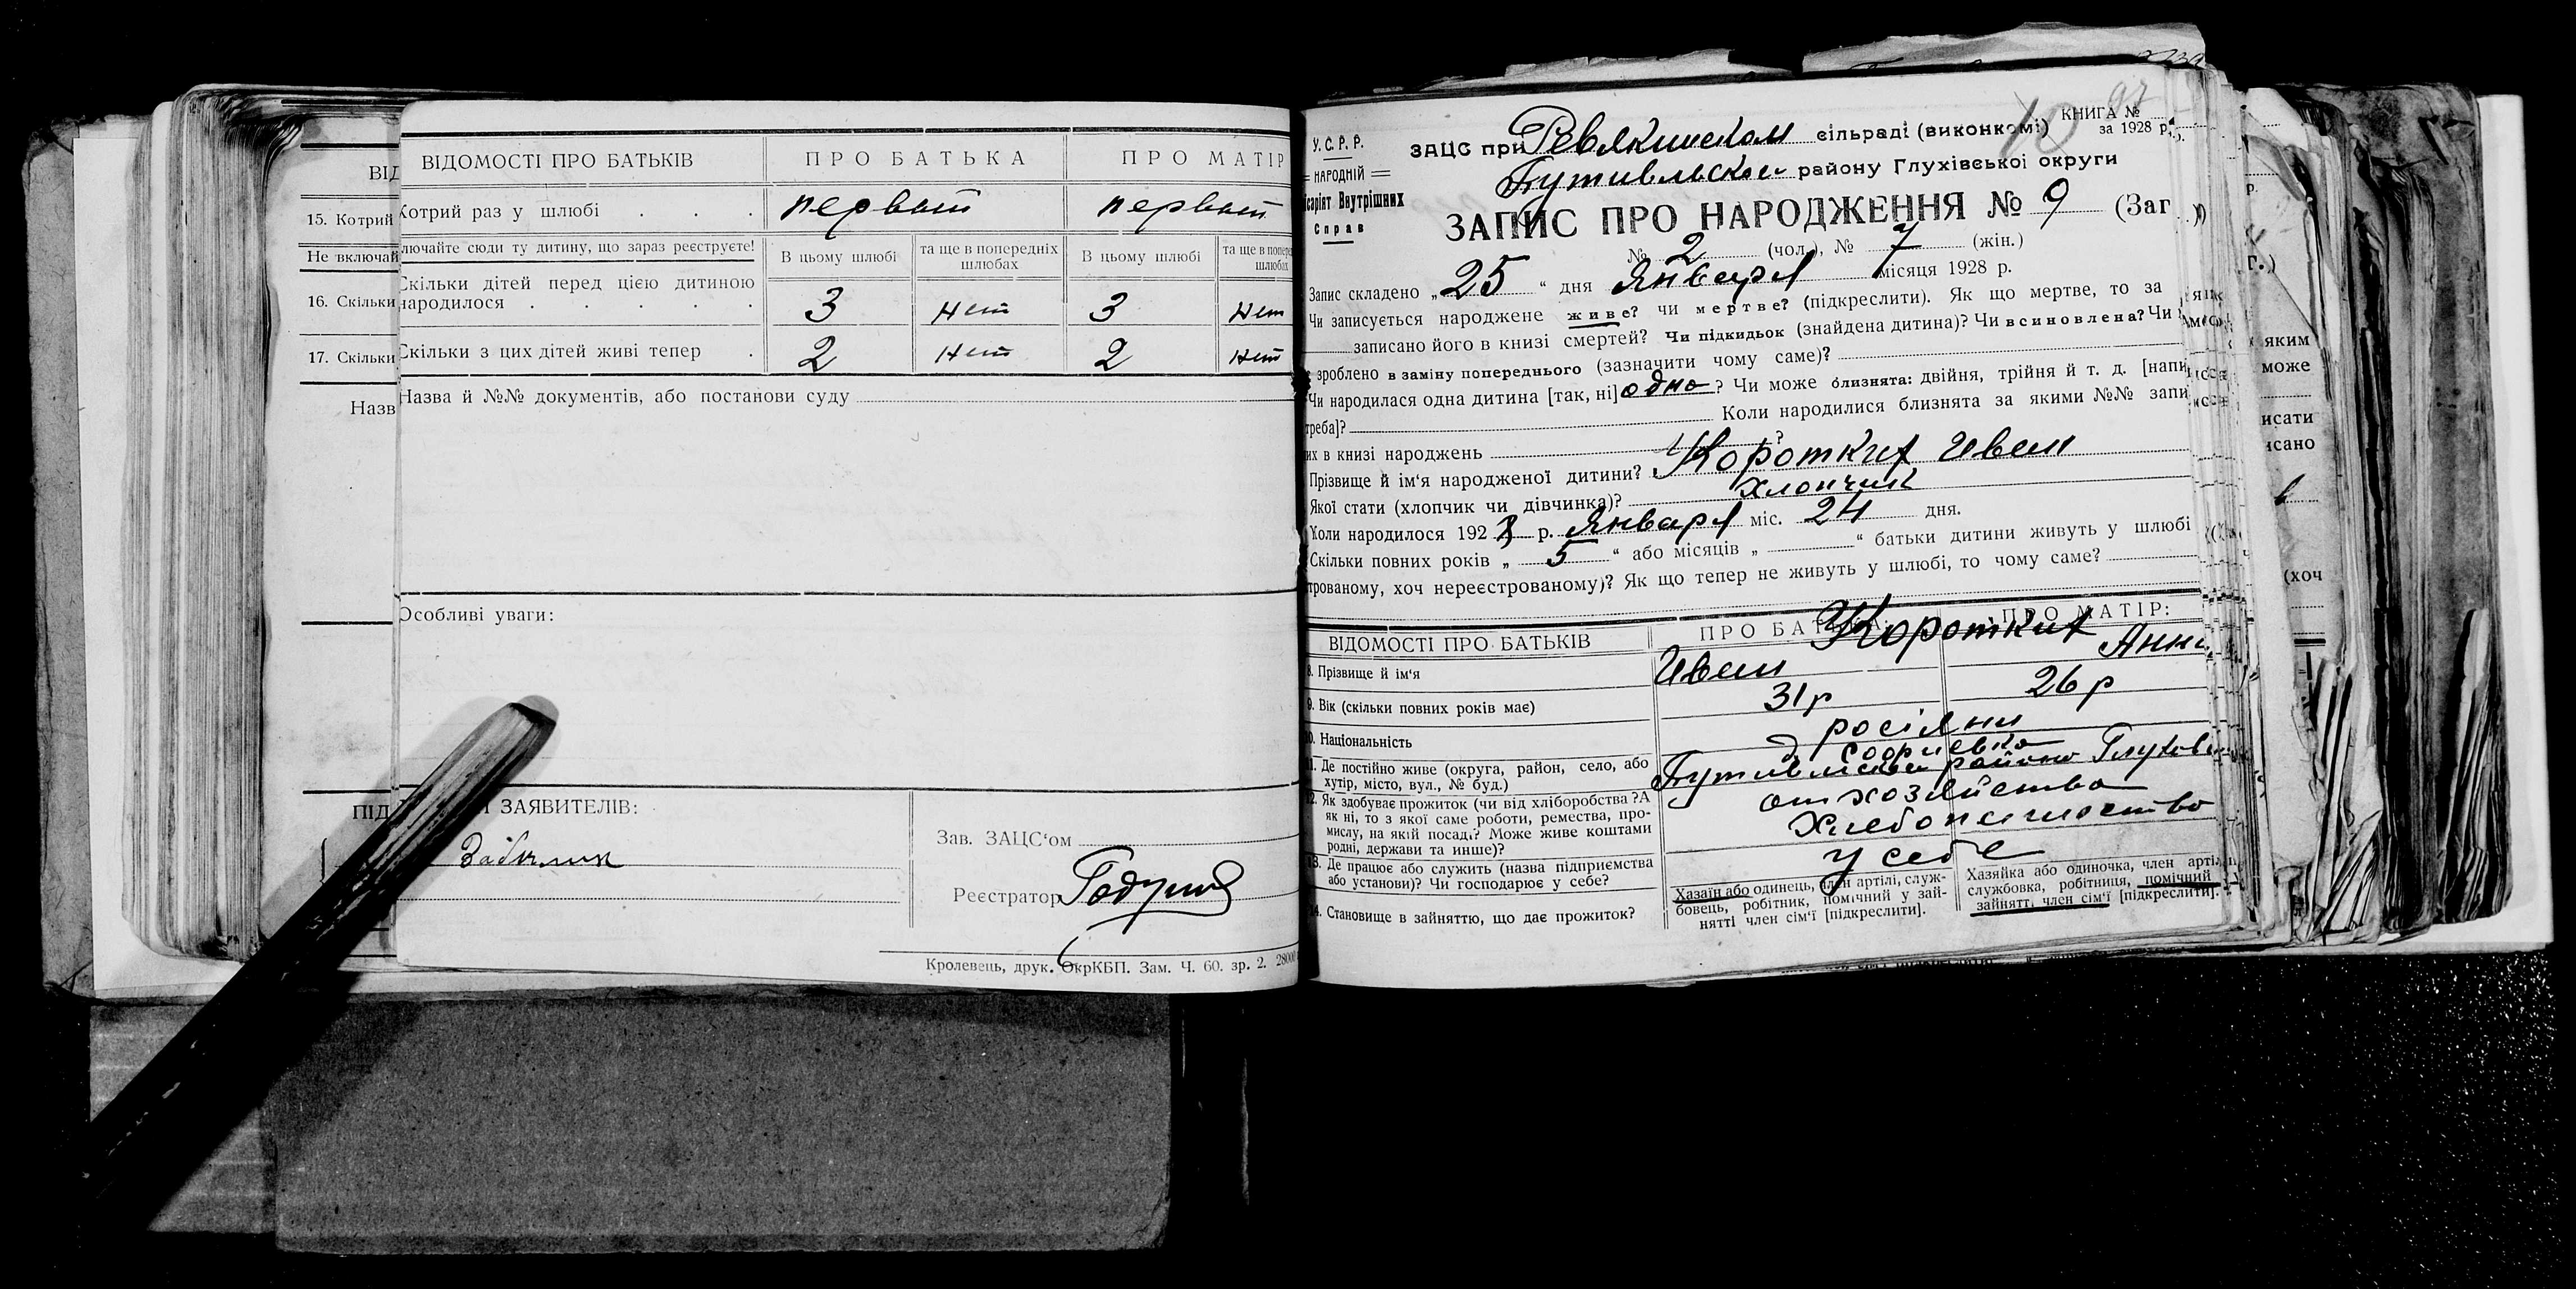 ВІДОМОСТІ ПРО БАТЬКІВ
ПРО БАТЬКА
ПРО МАТІР
15. Котрий
Котрий раз у шлюбі . . .
первый
первый
Не включай
лючайте сюди ту дитину, що зараз реєструєте!
В цьому шлюбі
та ще в попередніх шлюбах
В цьому шлюбі
16. Скільки
Скільки дітей перед цією дитиною
народилося . . . . .
3
нет
3
нет
17. Скільки
Скільки з цих дітей живі тепер .
2
нет
2
нет
Назв
Назва й №№ документів, або постанови суду
Особливі уваги:
ПІД
ЗАЯВИТЕЛІВ:
Зав. ЗАЦС'ом
Реєстратор
Кролевець, друк. ОкрКБП. Зам. Ч. 60. зр. 2.
КНИГА №
за 1928 р.
У.С.Р.Р.
НАРОДНІЙ
Внутрішних
Справ
ЗАЦС при Ревякинском сільраді (виконкомі)
Путивльском району Глухівської округи
ЗАПИС ПРО НАРОДЖЕННЯ № 9 (Заг
№ 2 (чол.), № 7 (жін.)
Запис складено „25“ дня Января місяця 1928 р.
Чи записується народжене живе? чи мертве? (підкреслити). Як що мертве, то за
записано його в книзі смертей? Чи підкидьок (знайдена дитина)? Чи всиновлена? Чи
зроблено в заміну попереднього (зазначити чому саме)?
Чи народилася одна дитина [так, ні] одно? Чи може близнята: двійня, трійня й т. д. [напи
треба]? Коли народилися близнята за якими №№ запи
их в книзі народжень ?
Прізвище й ім'я народженої дитини? Коротких Иван
Якої стати (хлопчик чи дівчинка)? хлопчик
Коли народилося 1928 р. Января міс. 24 дня.
Скільки повних років „5“ або місяців „ “ батьки дитини живуть у шлюбі
трованому, хоч нереєстрованому)? Як що тепер не живуть у шлюбі, то чому саме?
ВІДОМОСТІ ПРО БАТЬКІВ
ПРО БАТЬКА:
ПРО МАТІР:
8. Прізвище й ім'я
Коротких
Иван
Анна
9. Вік (скільки повних років має)
31 р
26 р
10. Національність
росіяни
11. Де постійно живе (округа, район, село, або
хутір, місто, вул., № буд.)
Путивльски району Глухов
12. Як здобуває прожиток (чи від хліборобства? А
як ні, то з якої саме роботи, ремества, про-
мислу, на якій посаді? Може живе коштами
родні, держави та инше)?
от хозяйства
13. Де працює або служить (назва підприємства
або установи)? Чи господарює у себе?
у себе
14. Становище в зайняттю, що дає прожиток?
Хазяїн або одинець, член артілі, служ-
бовець, робітник, помічний у зай-
нятті член сім'ї [підкреслити].
Хазяйка або одиночка, член артіл
службовка, робітниця, помічний
зайнятті член сім'ї [підкреслити].
яким
може
исати
исано
(хоч